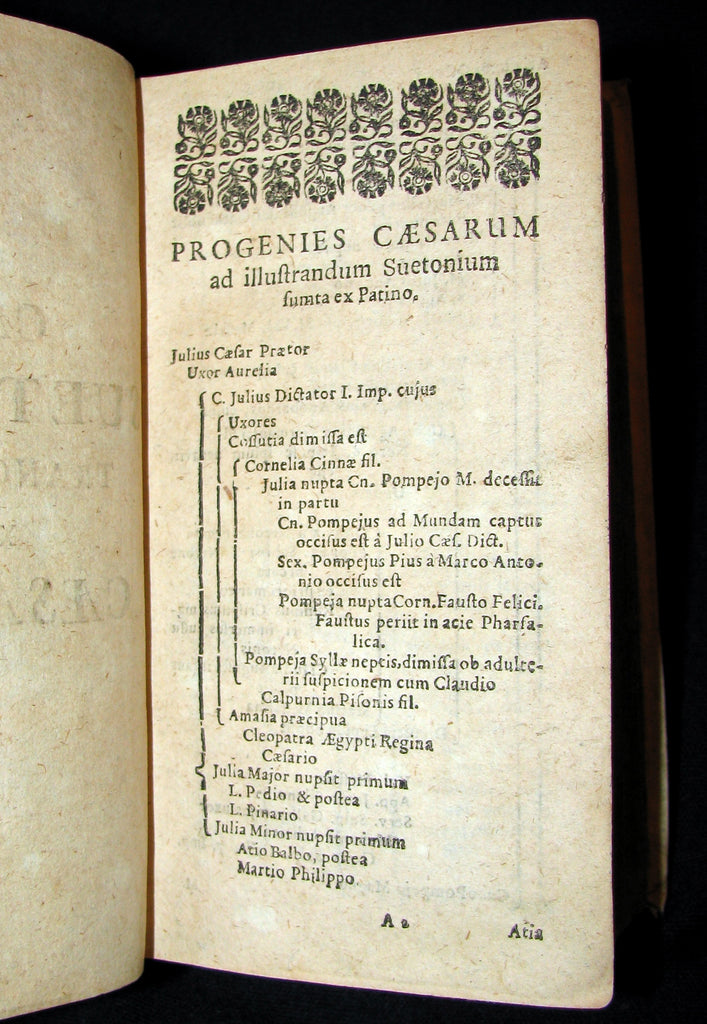 PROGENIES CÆSARUM
ad illuſtrandum Suetonium
ſumta ex Patino.
Julius Cæſar Prætor
Uxor Aurelia
C. Julius Dictator I. Imp. cujus
Uxores
Coſſutia dimiſſa eſt
Cornelia Cinnæ fil.
Julia nupta Cn. Pompejo M. deceſſit
in partu
Cn. Pompejus ad Mundam captus
occiſus eſt â Julio Cæſ. Dict.
Sex. Pompejus Pius à Marco Anto-
nio occiſus eſt
Pompeja nupta Corn. Fauſto Felici.
Fauſtus periit in acie Pharſa-
lica.
Pompeja Syllæ neptis, dimiſſa ob adulte-
rii ſuſpicionem cum Claudio
Calpurnia Piſonis fil.
Amaſia præcipua
Cleopatra Ægypti Regina
Cæſario
Julia Major nupſit primum
L. Pedio & poſtea
L. Pinario
Julia Minor nupſit primum
Atio Balbo, poſtea
Martio Philippo.
A 2 Atia